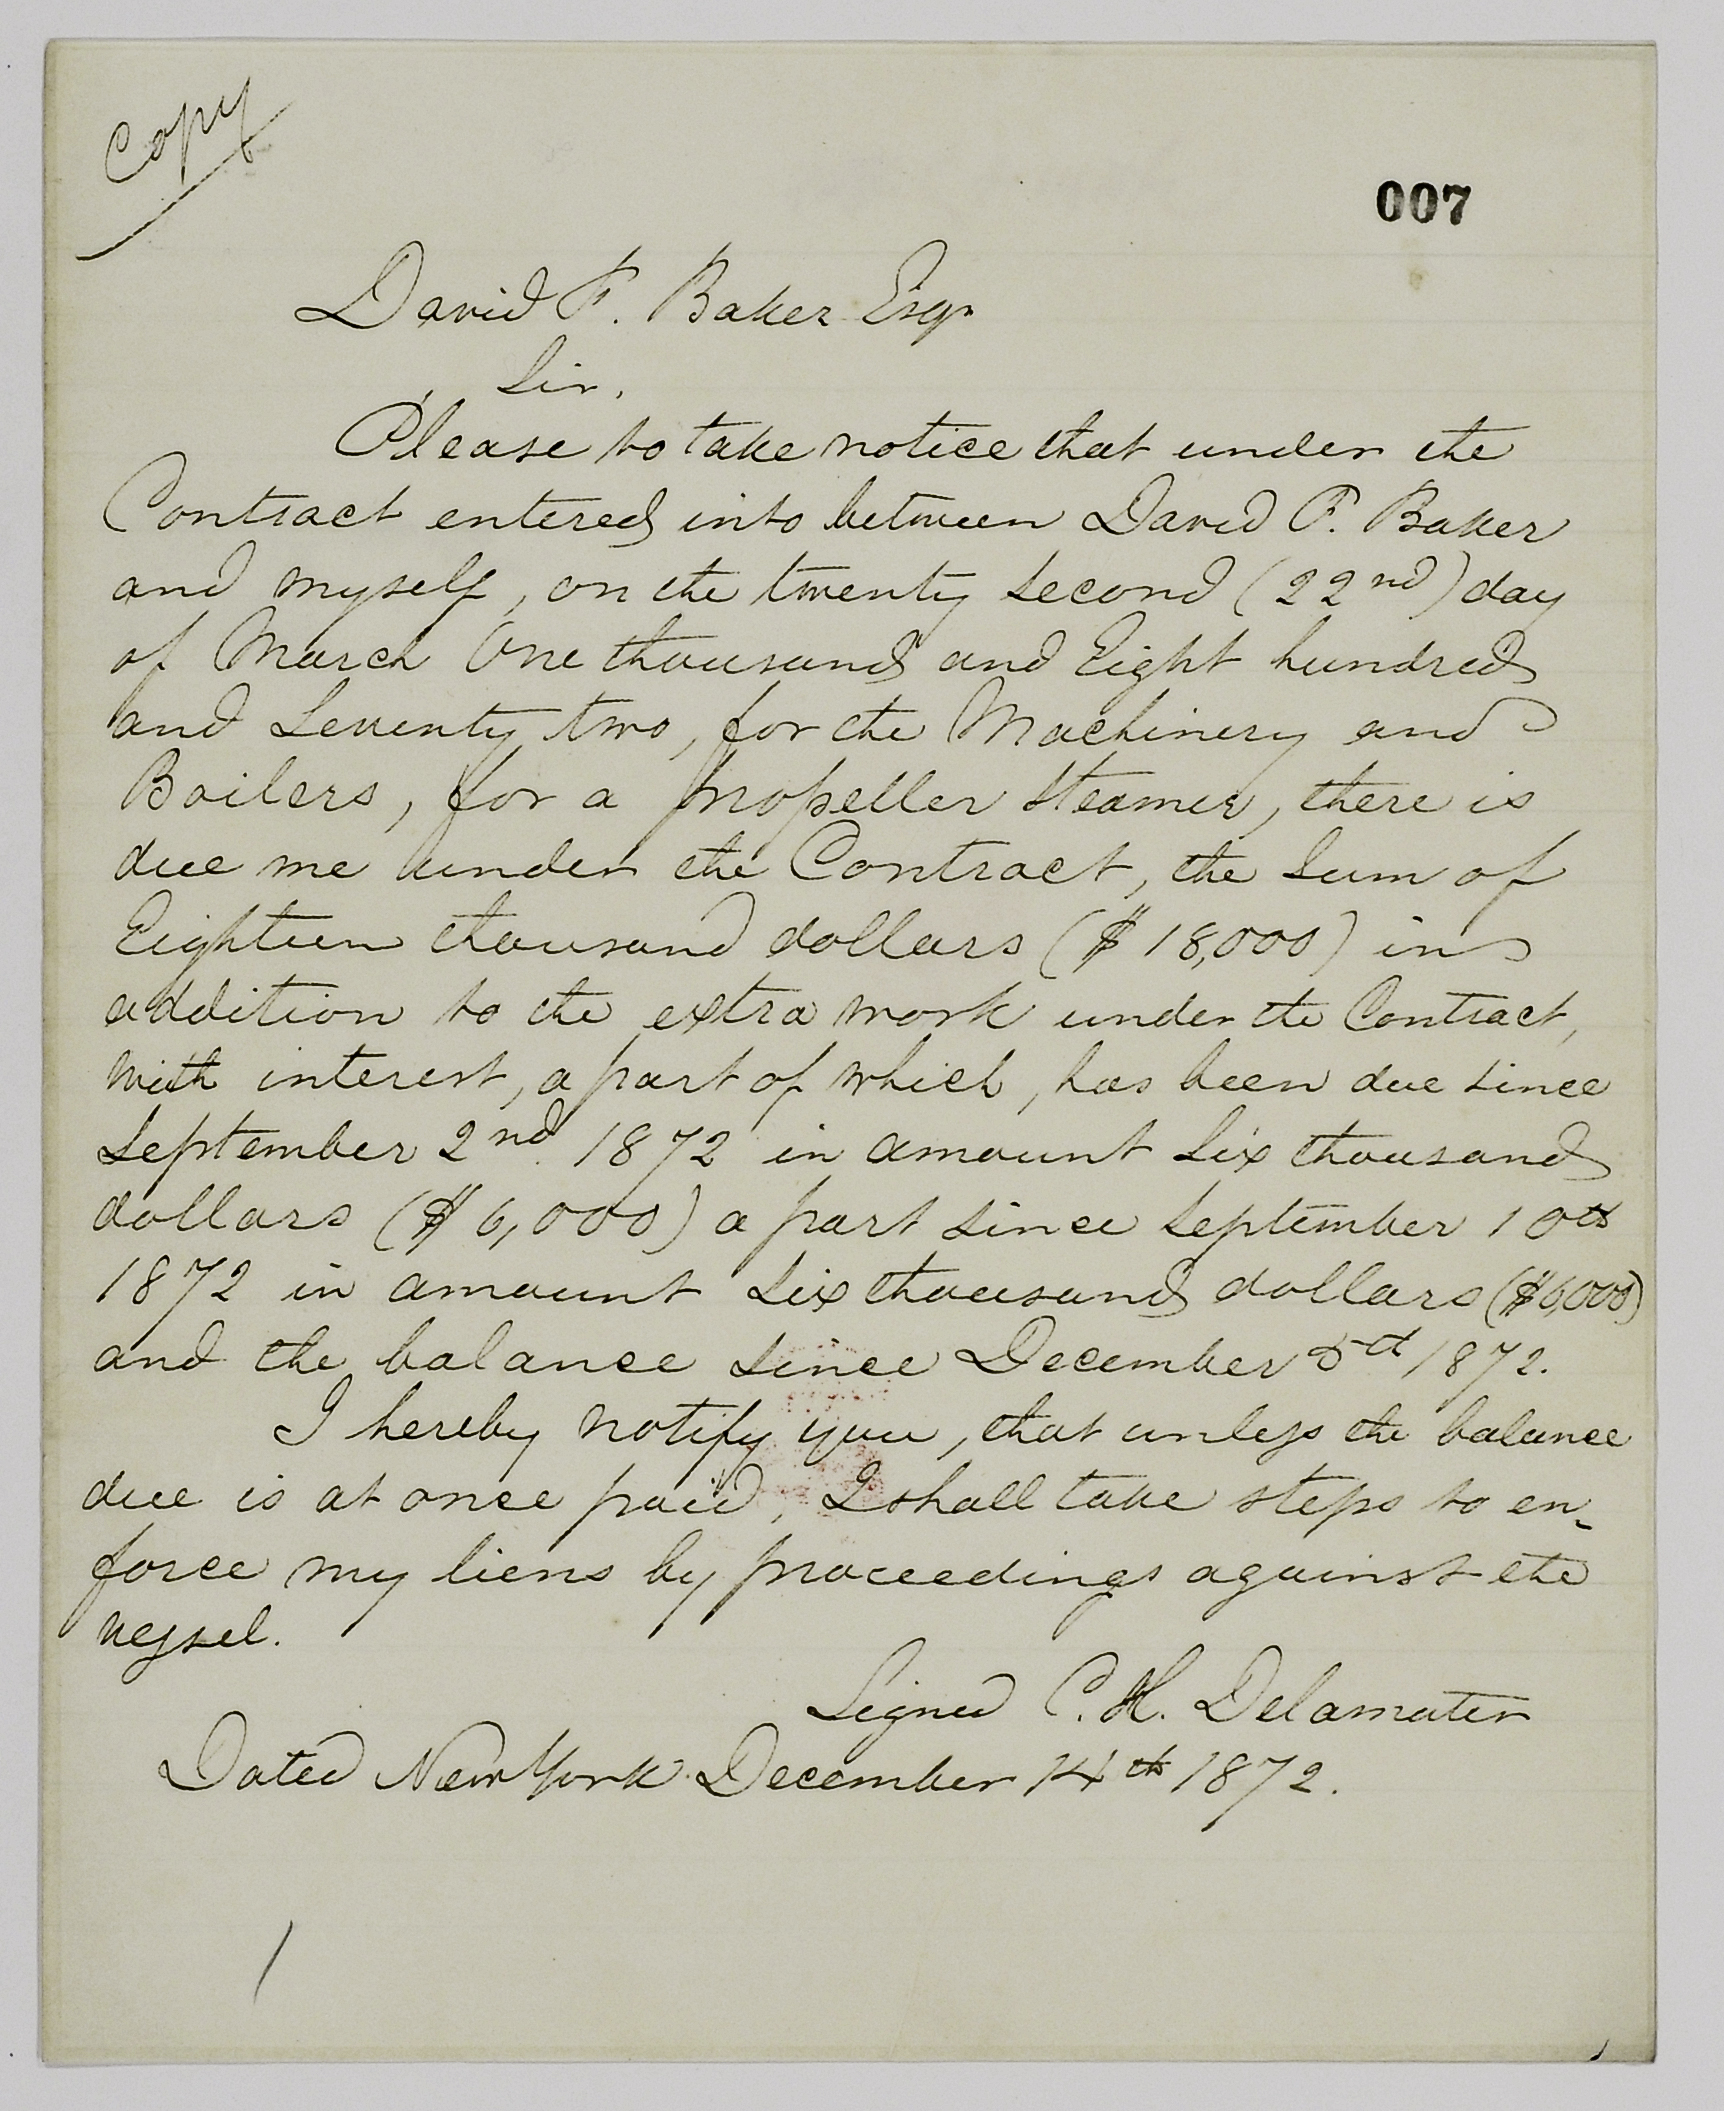 Copy
007
David F. Baker Esqr
Sir,
Please to take notice that under the
Contract entered into between David F. Baker
and myself, on the twenty second (22nd) day
of March One thousand and Eight hundred
and Seventy two, for the Machinery and
Boilers, for a propeller steamer, there is
due me under the Contract, the Sum of
Eighteen thousand dollars ($18,000) in
addition to the extra work under the Contract,
with interest, a part of which, has been due since
September 2nd 1872 in amount Six thousand
dollars ($6,000) a part since September 10th
1872 in amount Six thousand dollars ($6,000)
and the balance since December 5th 1872.
I hereby notify you, that unless the balance
due is at once paid, I shall take steps to en-
force my liens by proceedings against the
vessel.
Signed C. H. Delamater
Dated New York December 14th 1872.